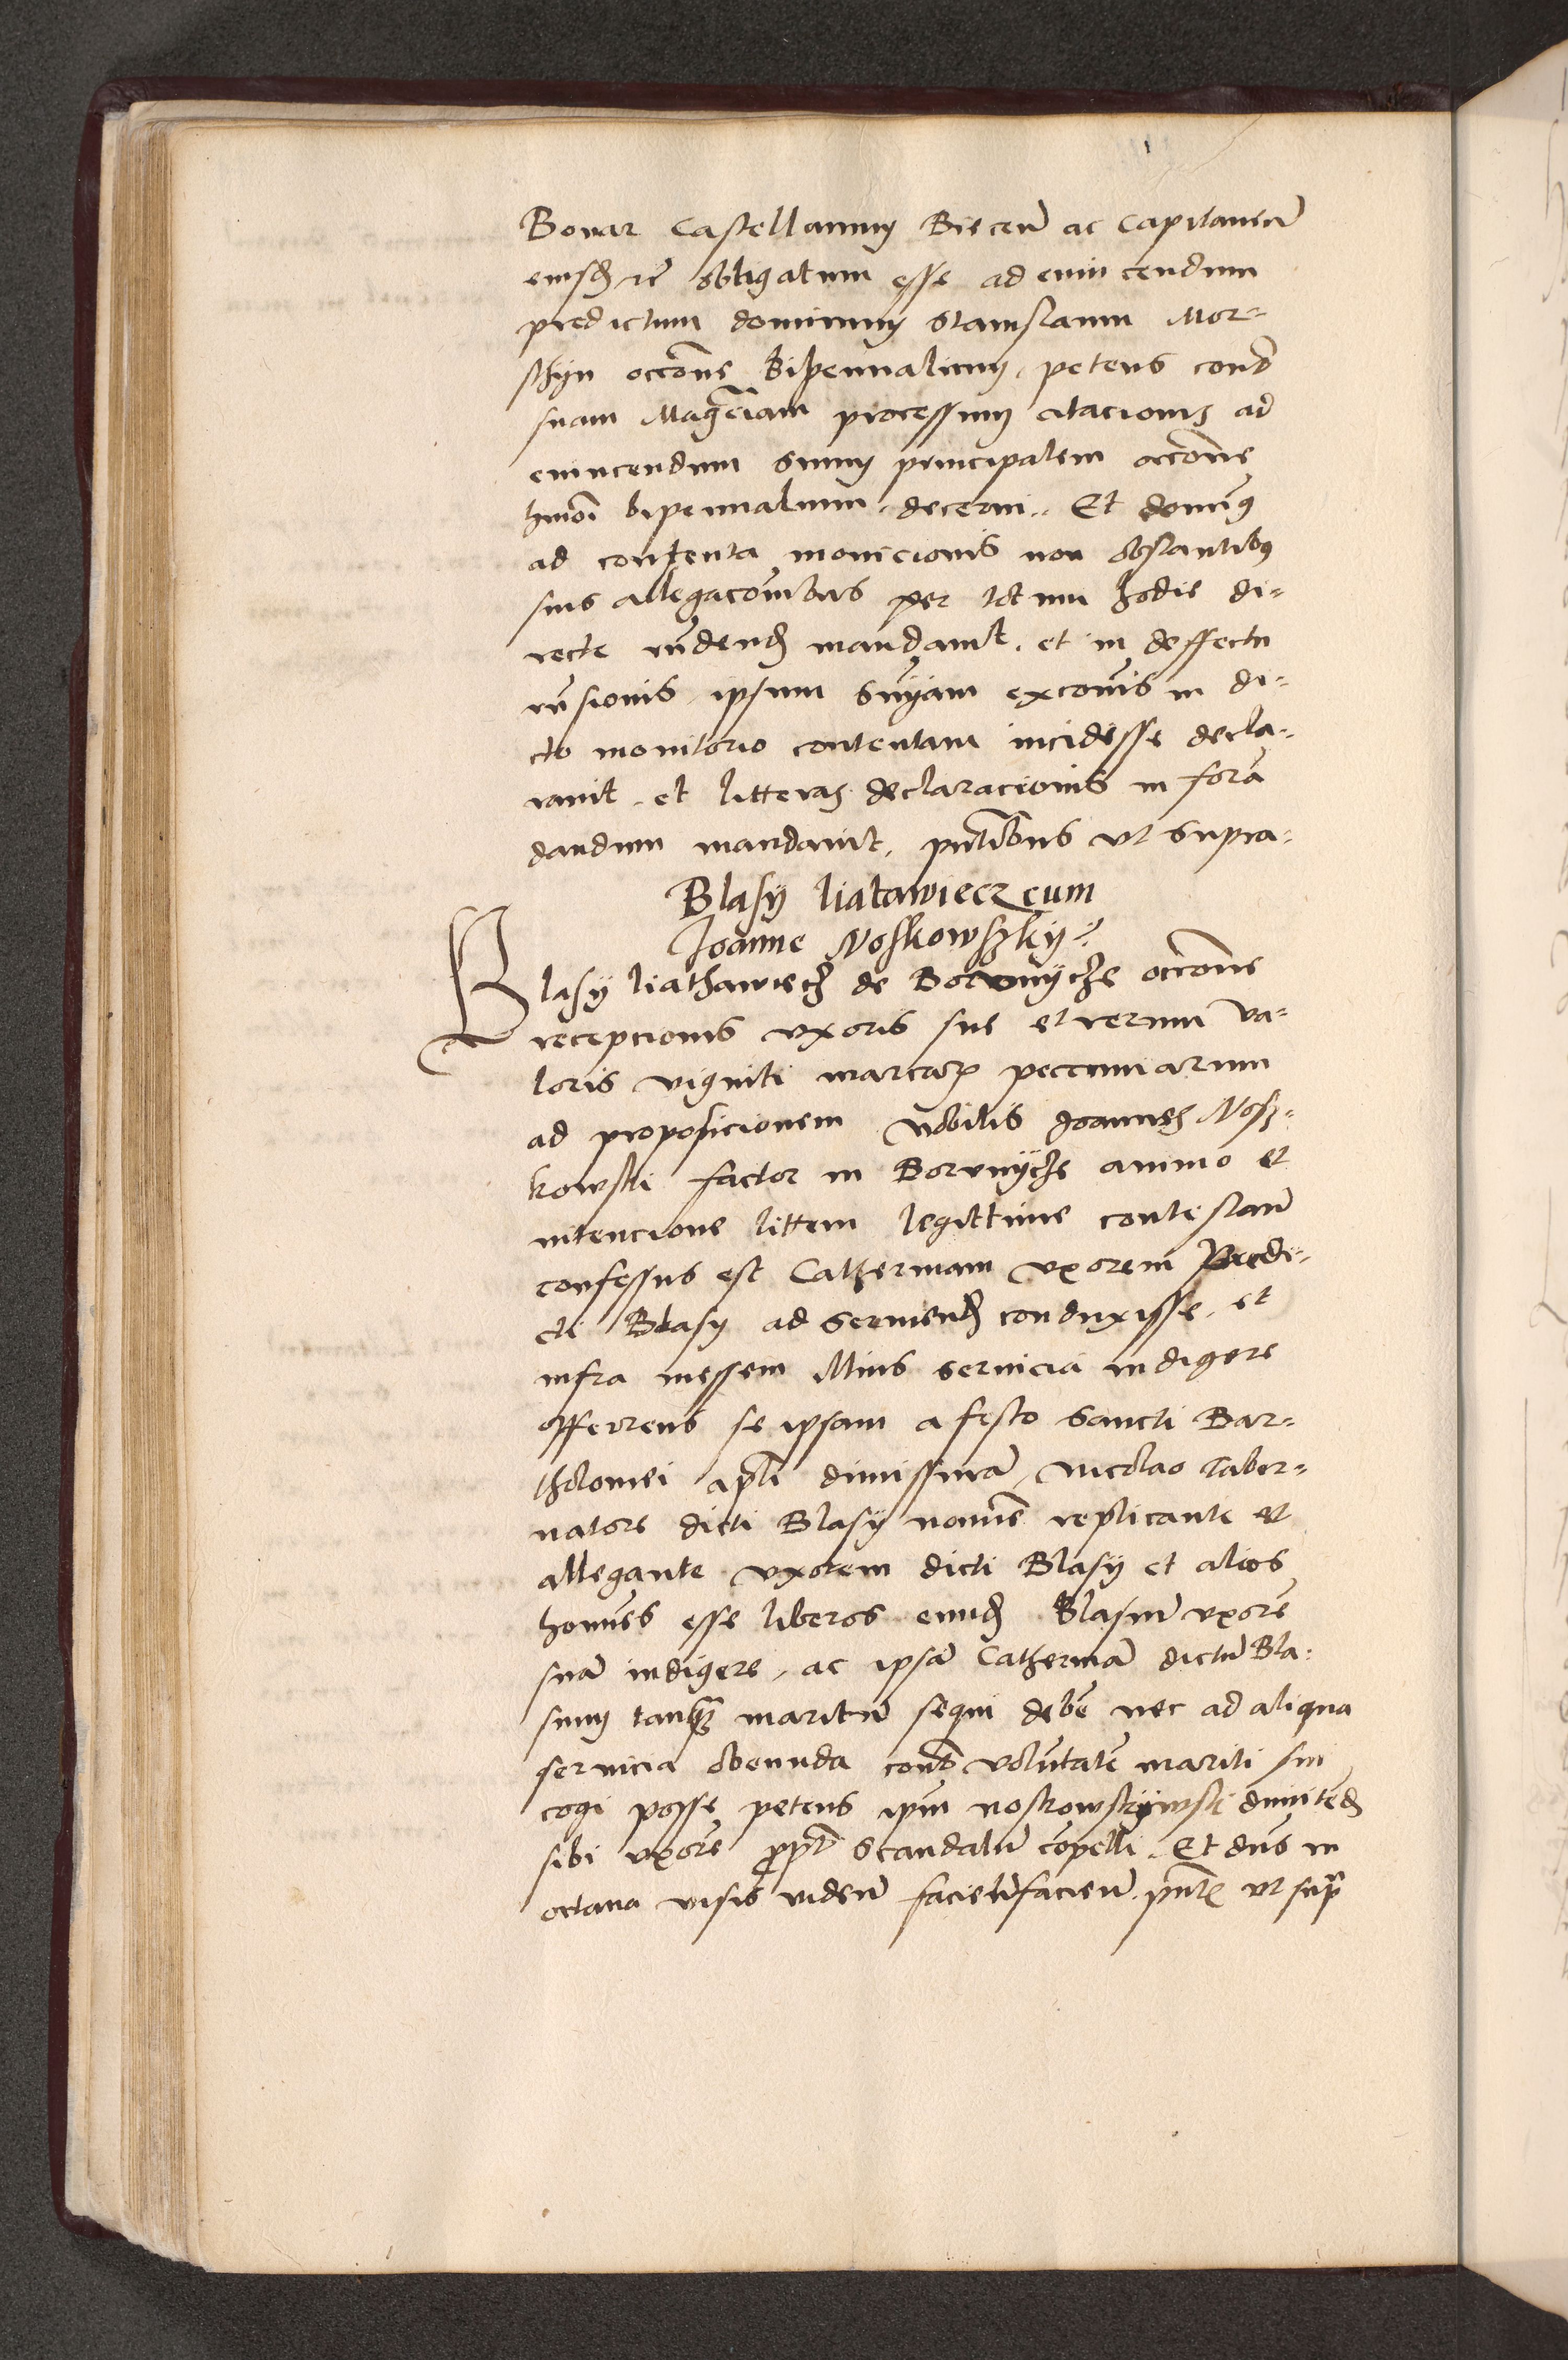 Bonar Castellanum Biecen̄ ac Capitaneū
eiusdē re obligatum esse ad euincendum
predictum dominum Stanislaum Mor-
schyn occōne bipennalium, petens contᵃ
suam Magcīam processum citacionis ad
euincendum Suum principalem occōne
hmōi bipennalium, decerni. Et dominꝰ
ad contenta monicionis non obstantibꝰ
suis allegacōnibus per totum hodie di-
recte rn̄dendū mandauit, et in deffectu
rn̄sionis ipsum sn̄yam excōnis in di-
cto monitorio contentam incidisse decla-
rauit, et litteras declaracionis in forā
dandum mandauit, pn̄tibus vt supra.
Blasÿ liatawiecz cum
Joanne Noskowszkÿ
Blasÿ liathawiecz de Borvnÿcze occōne
recepcionis vxoris sue et rerum va-
loris viginti marcaꝝ peccuniarum
ad proposicionem Nobilis Joannes Nosz-
kowski factor in Borvnÿcze animo et
intencione littem legittime contestan̄
confessus est Catherinam vxorem Predi-
cti Blasÿ ad seruiendū conduxisse, et
infra messem illius seruicia indigere
offerrens se ipsam a festo Sancti Bar-
tholomei apli dimissurā, Nicolao Taber-
natore dicti Blasÿ nomīe replicante et
allegante vxorem dicti Blasÿ et alios
homīes esse liberos eundē Blasiū vxorē
suā indigere, ac ipsā Catherinā dictū Bla-
sium tanqꝫ maritū sequi debē nec ad aliqua
seruicia obeunda contᵃ volūtatē mariti sui
cogi posse petens ipm̄ noskowskÿwski dimitēdū
sibi vxorē ꝓpt Scandalū cōpelli. Et dn̄s in
octaua visis viden̄ facietur facien̄ pn̄tꝰ vt supᵃ